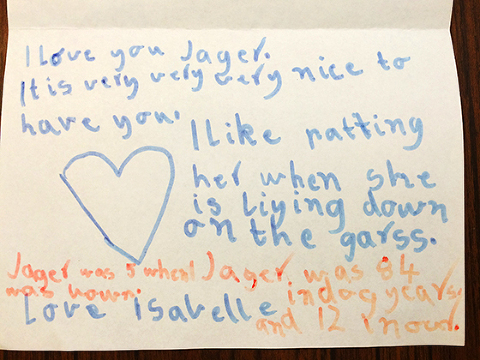 I Love you Jager.
It is very very very nice to
have you.
I Like patting
her when she
is liying down
on the garss.
Jager was 5 when I
was bown.
Jager was 84
in dog years.
and 12 in our.
Love isabelle